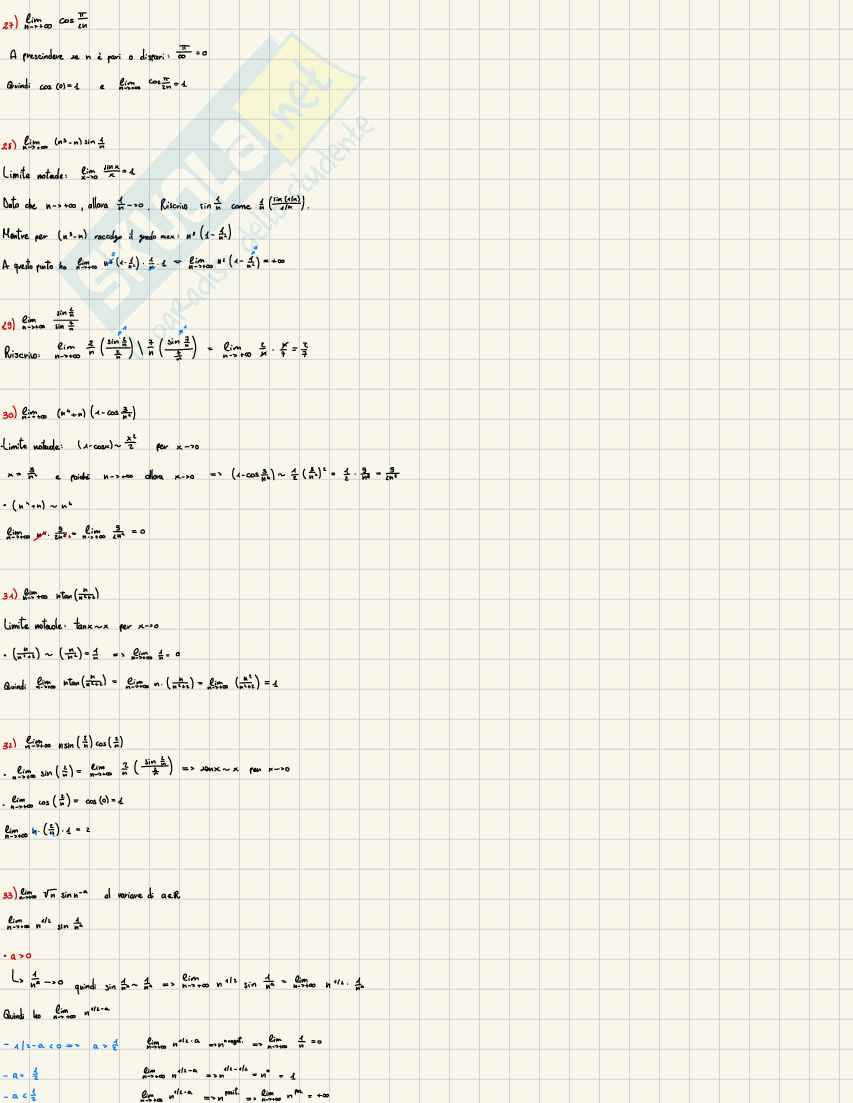 27) lim n->+∞ cos π/2n
A prescindere se n è pari o dispari: π/∞ = 0
Quindi cos(0)=1 e lim n->+∞ cos π/2n = 1
28) lim n->+∞ (n³-n) sin 1/n
Limite notevole: lim x->0 sinx/x = 1
Dato che n->+∞, allora 1/n ->0. Riscrivo sin 1/n come 1/n (sin(1/n)/1/n).
Mentre per (n³-n) raccolgo il grado max: n³(1-1/n²)
A questo punto ho lim n->+∞ n³(1-1/n²)·1/n·1 = lim n->+∞ n²(1-1/n²) = +∞
29) lim n->+∞ sin 2/n / sin 7/n
Riscrivo: lim n->+∞ 2/n (sin 2/n / 2/n) \ 7/n (sin 7/n / 7/n) = lim n->+∞ 2/n · n/7 = 2/7
30) lim n->+∞ (n⁴+n)(1-cos 3/n³)
·Limite notevole: (1-cosx)~ x²/2 per x->0
x = 3/n³ e poiché n->+∞ allora x->0 => (1-cos 3/n³) ~ 1/2 (3/n³)² = 1/2 · 9/n⁶ = 9/2n⁶
· (n⁴+n) ~ n⁴
lim n->+∞ n⁴ · 9/2n⁶ = lim n->+∞ 9/2n² = 0
31) lim n->+∞ ntan(n/n²+2)
Limite notevole: tanx~x per x->0
· (n/n²+2) ~ (n/n²) = 1/n => lim n->+∞ 1/n = 0
Quindi lim n->+∞ ntan(n/n²+2) = lim n->+∞ n·(n/n²+2) = lim n->+∞ (n²/n²+2) = 1
32) lim n->+∞ nsin(2/n)cos(2/n)
· lim n->+∞ sin(2/n) = lim n->+∞ 2/n (sin 2/n / 2/n) => sinx~x per x->0
· lim n->+∞ cos(2/n) = cos(0)=1
lim n->+∞ n·(2/n)·1 = 2
33) lim n->+∞ √n sin n⁻ᵃ al variare di a∈R
lim n->+∞ n^1/2 sin 1/nᵃ
· a>0
↳ 1/nᵃ ->0 quindi sin 1/nᵃ ~ 1/nᵃ => lim n->+∞ n^1/2 sin 1/nᵃ = lim n->+∞ n^1/2 · 1/nᵃ
Quindi ho lim n->+∞ n^1/2-a
- 1/2-a<0 => a>1/2 lim n->+∞ n^1/2-a => n^negat. => lim n->+∞ 1/n = 0
- a = 1/2 lim n->+∞ n^1/2-a => n^1/2-1/2 = n⁰ = 1
- a<1/2 lim n->+∞ n^1/2-a => n^posit. => lim n->+∞ = +∞
SKUOLA.net
paradiso dello studente